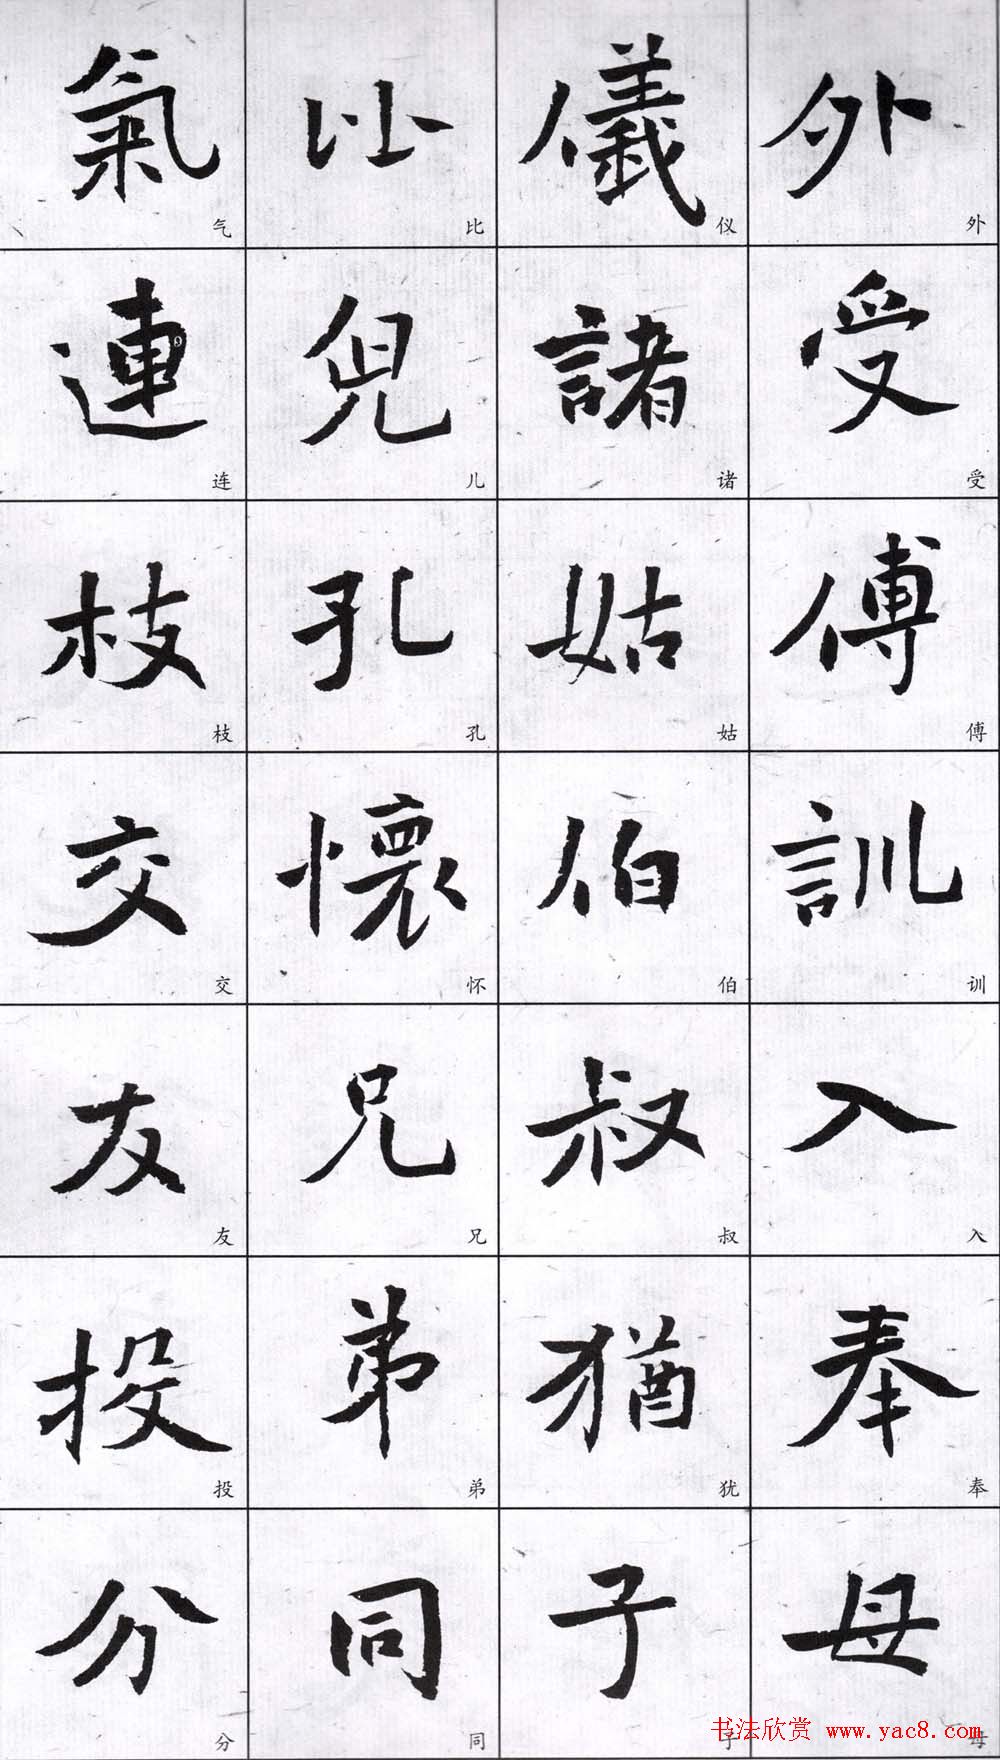 外受傅訓入奉母
外受傅训入奉母
儀諸姑伯叔猶子
仪诸姑伯叔犹子
比兒孔懷兄弟同
比儿孔怀兄弟同
氣連枝交友投分
气连枝交友投分
书法欣赏 www.yac8.com